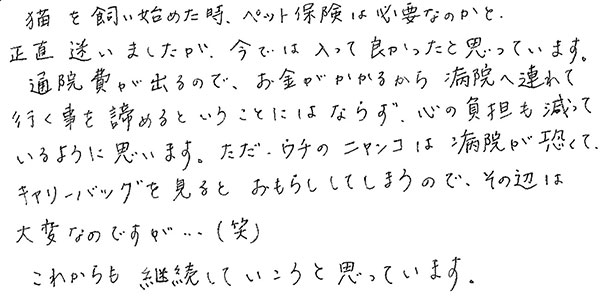 猫を飼い始めた時、ペット保険は必要なのかと、
正直迷いましたが、今では入って良かったと思っています。
通院費が出るので、お金がかかるから病院へ連れて
行く事を諦めるということにはならず、心の負担も減って
いるように思います。ただ、ウチのニャンコは病院が恐くて、
キャリーバッグを見るとおもらししてしまうので、その辺は
大変なのですが…(笑)
これからも継続していこうと思っています。